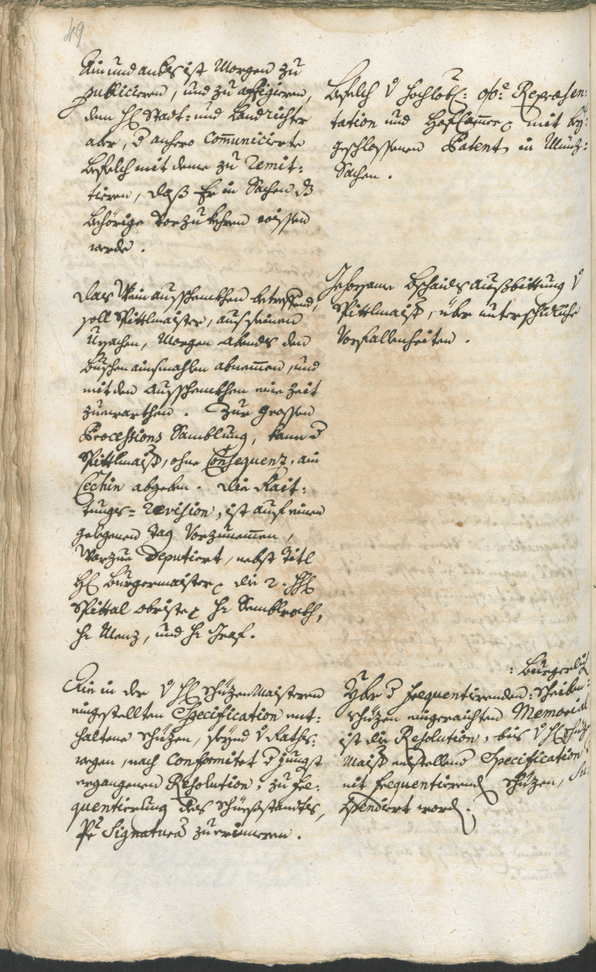 49
Ain und anders ist Morgen zu
publicieren, und zu affigieren,
dem H: Stadt- und Landrichter
aber, d anhero communicierte
Befelch mit deme zu remit-
tieren, daß Er in Sachen dz
behörige Vorzukehren wissen
werde.
Befelch V hochlobl: obe Repræsen-
tation und Hof Cammer mit bey-
geschlossenen Patent, in Münz-
Sachen.
Das Wein ausschenkhen betreffend,
soll Spittlmaister, auf seinen
Ursachen, Morgen abends den
Buschen ainsmahlen abnemmen, und
mit den ausschenkhen eine Zeit
zuwarthen. Zur grossen
Processions Samblung, kann d
Spittlmaister, ohne Consequenz, ain
Cechin abgeben. Die Rait-
tungs-revision, ist auf einen
gelegenen Tag Vorzunemmen,
Deputiert, nebst Titl
H: Burgermaister, die 2. HH:
Spittal obrister, Hr
Hr Menz, und Hr Graf.
Gehorsame Bschaidts Ausbittung V
Spittlmaister, über unterschidliche
Vorfallenheiten.
Die in der V HH: Schüzenmaisteren
eingestellten Specification ent-
haltene Schüzen, seynd V Raths-
wegen, nach Conformitet d jüngst
ergangenen Resolution, zu fre-
quentierung des Schüesstandtes,
Pr Signatura zu erinneren.
: Bürgerlich
Yber d frequentierenden: Scheiben-
Schüzen eingeraichten Memorial
ist die Resolution, bis V HH: Schüz
Maister Specification
nit frequentierend Schüzen,
word.